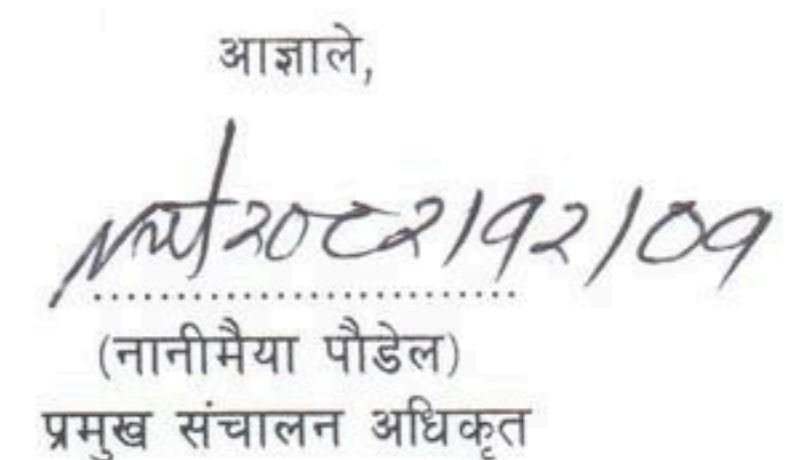 आज्ञाले,
२०८२/१२/०१
........................
(नानीमैया पौडेल)
प्रमुख संचालन अधिकृत